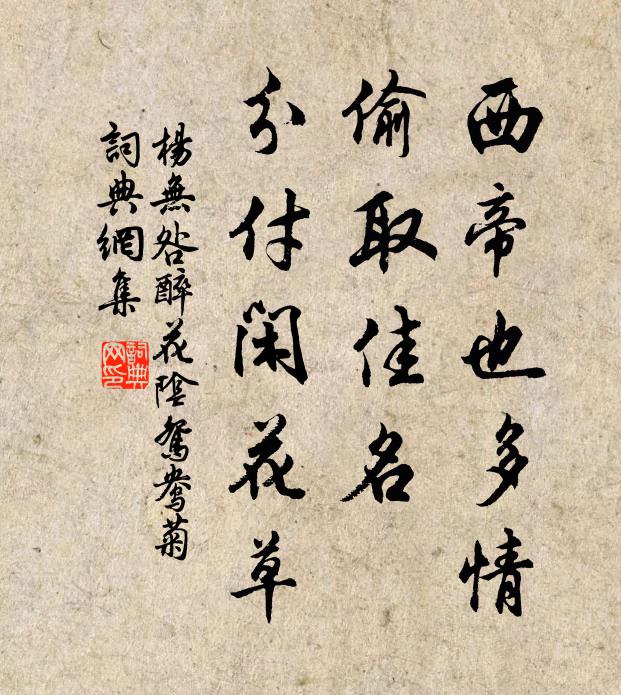 西帝也多情
偷取佳名
分付閑花草
楊無咎醉花陰鴛鴦菊
詞典網集
詞典网印